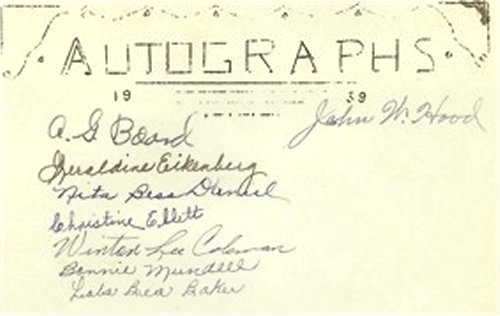 AUTOGRAPHS
19 39
John W. Hood
A G Board
Geraldine Eikenberg
Nita Bess Daniel
Christine Ellett
Winton Lee Coleman
Bonnie Mundell
Baker